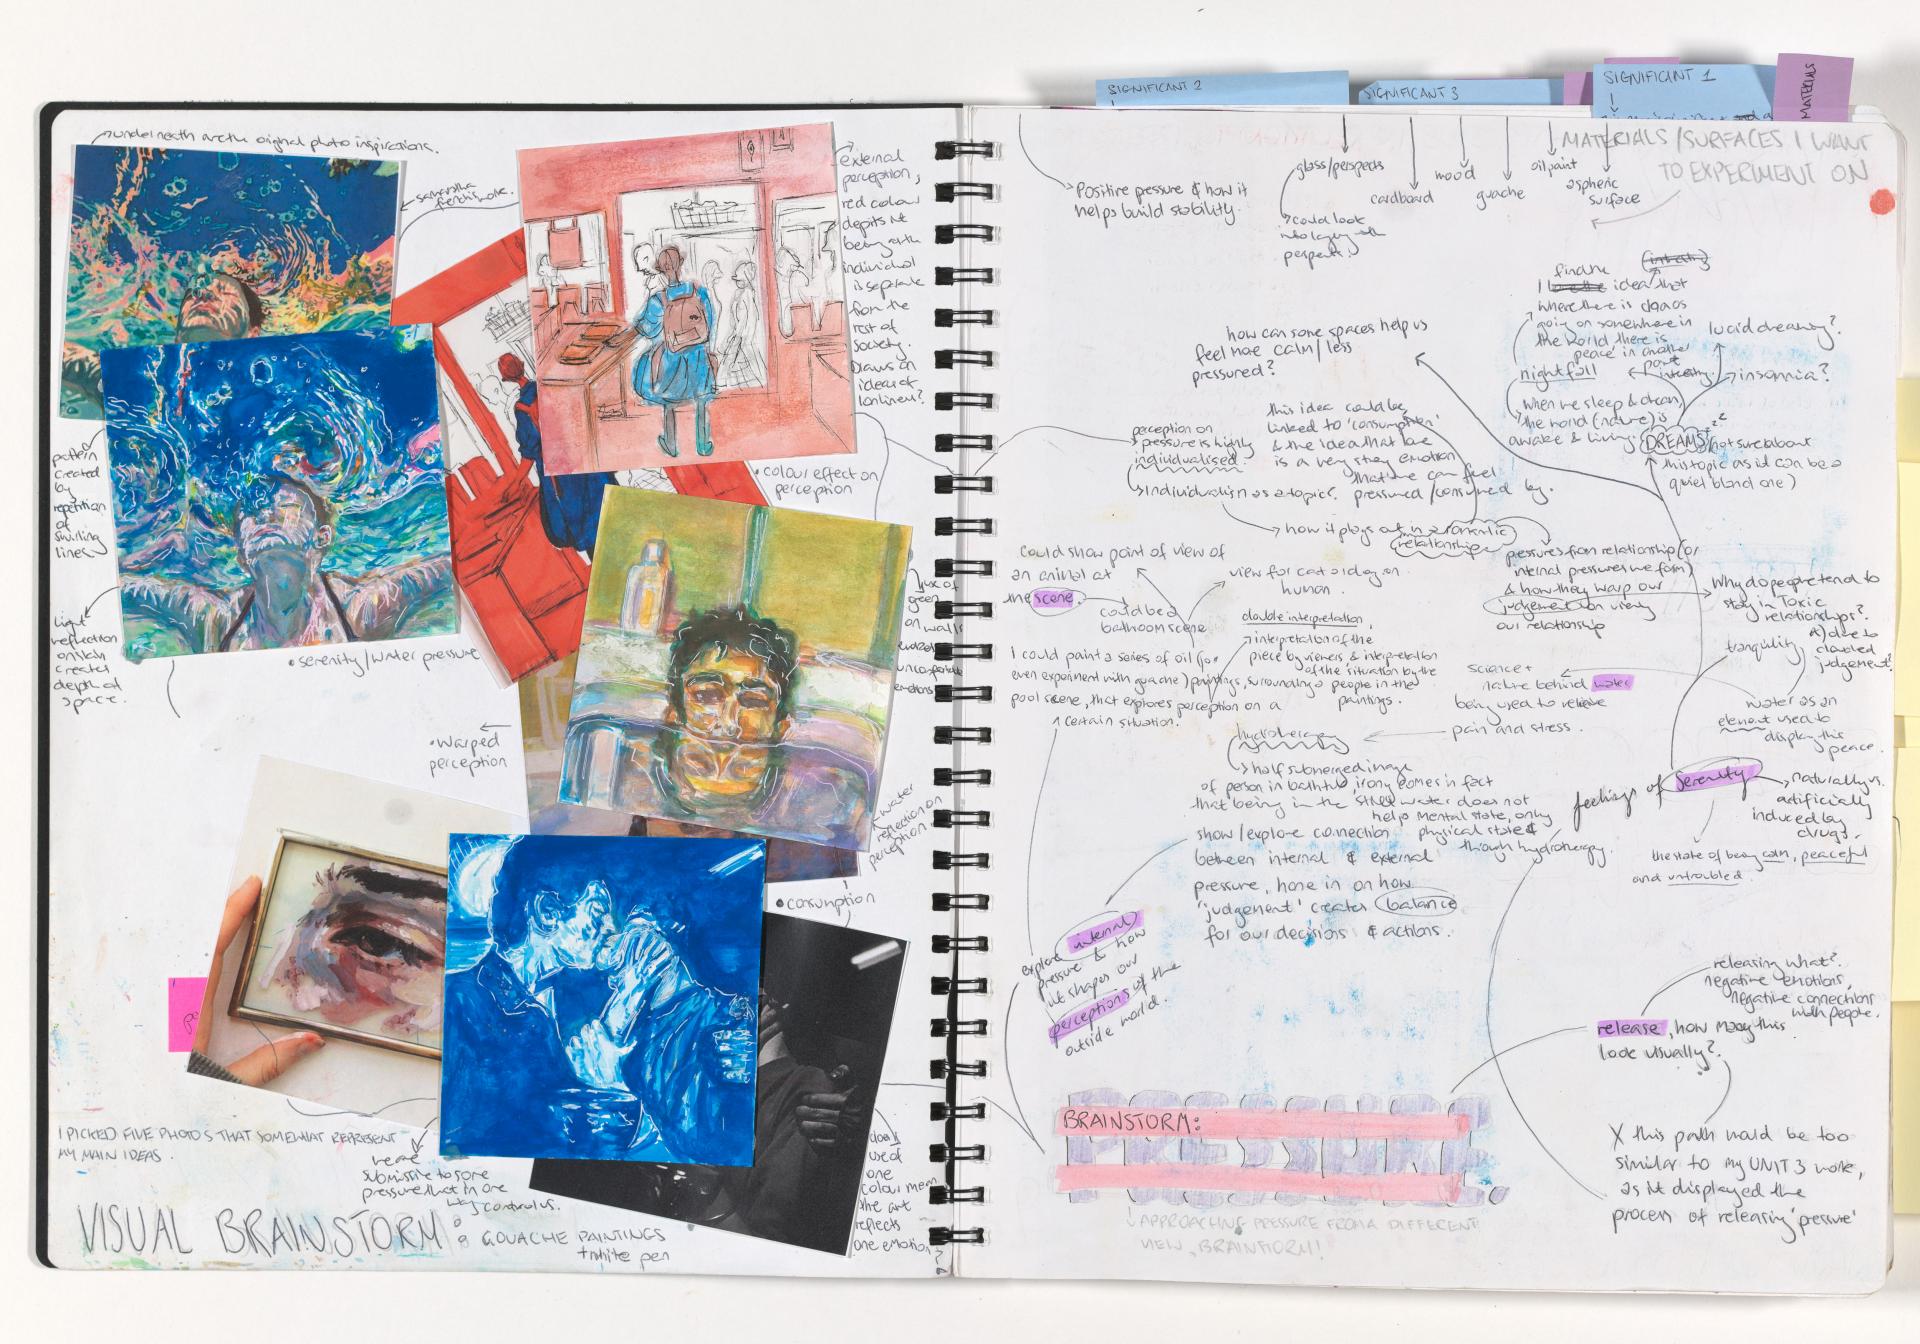 underneath are the original photo inspirations.
samantha
french work.
external
perception,
red colour
depicts it
being as the
individual
is separate
from the
rest of
society.
Draws on
ideas of
lonliness?
• colour effect on
perception
pattern
created
by
repetition
of
swirling
lines
Light
reflection
on skin
creates
depth of
space.
• serenity/water pressure
use of
green
on walls
uncomfortable
emotions
• Warped
perception
water
reflection on
perception
• consumption
I PICKED FIVE PHOTOS THAT SOMEWHAT REPRESENT
MY MAIN IDEAS.
we are
submissive to some
pressure that in one
way control us.
does
use of
one
colour mean
the art
reflects
one emotion?
VISUAL BRAINSTORM
GOUACHE PAINTINGS
+ white pen
SIGNIFICANT 2
SIGNIFICANT 3
SIGNIFICANT 1
MATERIALS
MATERIALS/SURFACES I WANT
TO EXPERIMENT ON
Positive pressure & how it
helps build stability.
glass/perspects
could look
into layering with
perspects?
cardboard
wood
guache
oil paint
aspheric
surface
how can some spaces help us
feel more calm/less
pressured?
find the
I idea that
where there is chaos
going on somewhere in
the world there is
'peace' in another
part
nightfall
when we sleep & dream,
the world (nature) is
awake & living.
lucid dreaming?
insomnia?
DREAMS
(not sure about
this topic as it can be a
quiet bland one)
perception on
pressure is highly
individualised.
Individualism as a topic?
this idea could be
linked to 'consumption'
& the idea that love
is a very strong emotion
that we can feel
pressured/consumed by.
how it plays out in a romantic
relationship
pressures from relationship (or
internal pressures we form)
& how they warp our
judgement on viewing
our relationship
Why do people tend to
stay in Toxic
relationships?
due to
clouded
judgement?
could show point of view of
an animal at
the scene
could be a
bathroom scene
view for cat or dog on
human.
double interpretation,
interpretation of the
piece by viewers & interpretation
of the situation by the
people in the
paintings.
I could paint a series of oil (or
even experiment with guache) paintings, surrounding a
pool scene, that explores perception on a
certain situation.
tranquility
science +
nature behind water
being used to relieve
pain and stress.
water as an
element used to
display this
peace.
hydrotherapy
half submerged image
of person in bathtub, irony comes in fact
that being in the still water does not
help mental state, only
physical state
through hydrotherapy.
feelings of serenity
naturally vs.
artificially
induced by
drugs.
the state of being calm, peaceful
and untroubled.
show/explore connection
between internal & external
pressure, hone in on how
'judgement' creates balance
for our decisions & actions.
explore internal
pressure & how
it shapes our
perceptions of the
outside world.
releasing what?
negative emotions,
negative connections
with people.
release, how may this
look visually?
BRAINSTORM:
PRESSURE
APPROACHING PRESSURE FROM A DIFFERENT
VIEW, BRAINSTORM!
X this path would be too
similar to my UNIT 3 work,
as it displayed the
process of releasing 'pressure'